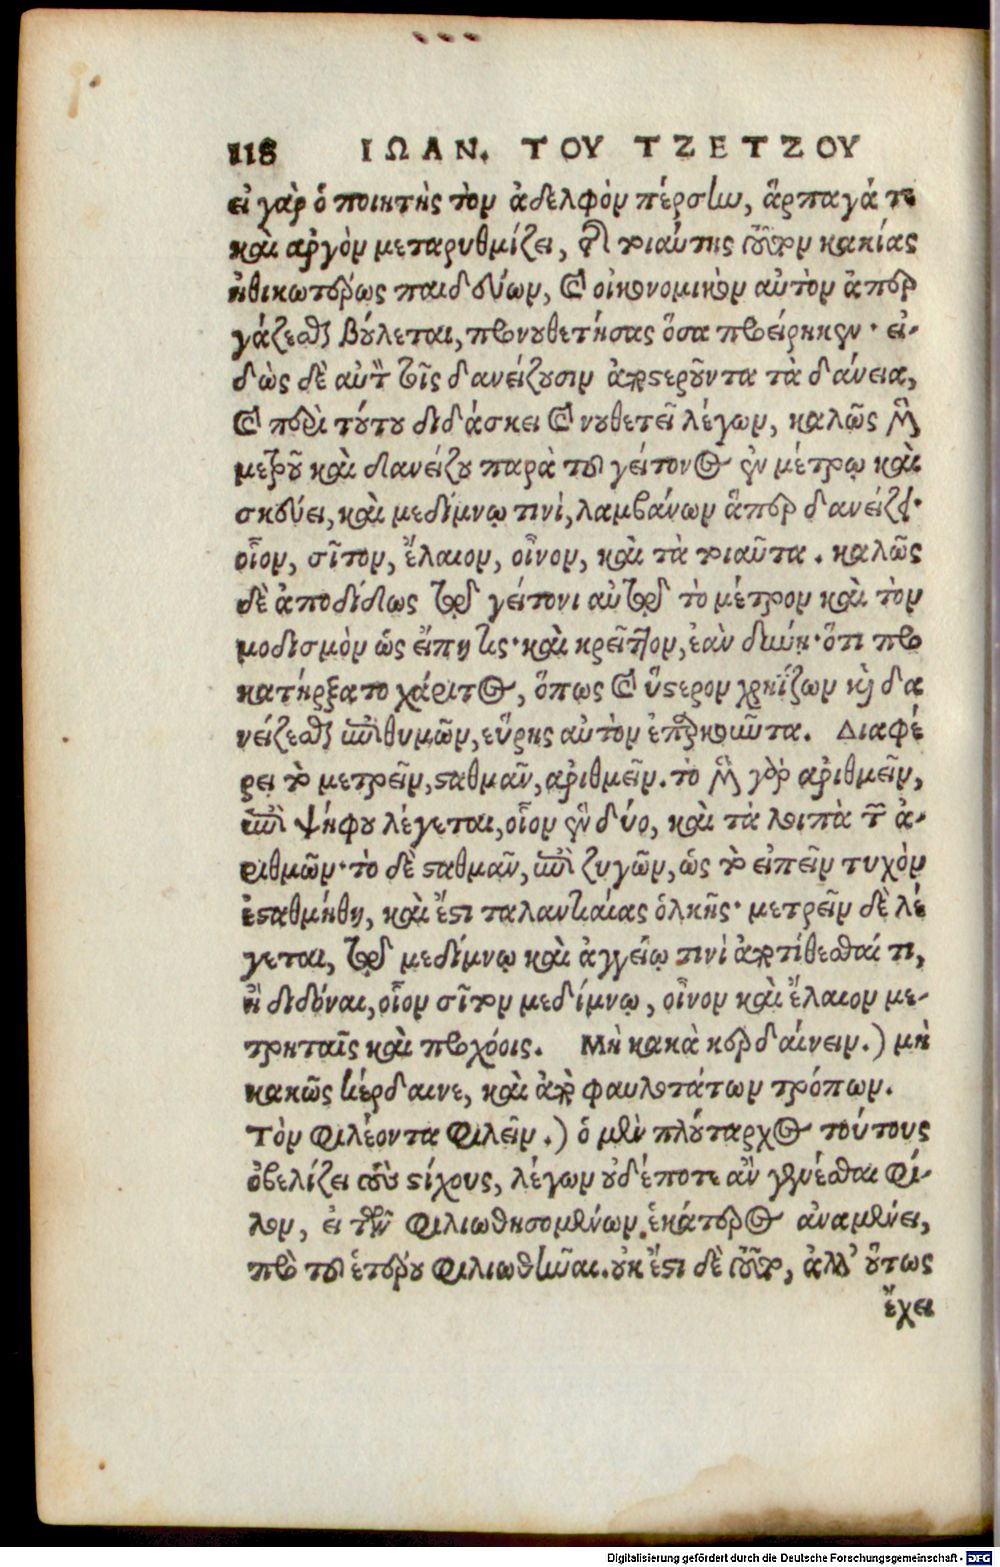 118 ΙΩΑΝ. ΤΟΥ ΤΖΕΤΖΟΥ
εἰ γὰρ ὁ ποιητὴς τὸν ἀδελφὸν πέρσην, ἅρπαγά τε
καὶ αργὸν μεταρυθμίζει, τοιαύτης κακίας
ἠθικωτέρως παιδεύων, καὶ οἰκονομικὸν αὐτὸν ἀπερ
γάζεσθαι βούλεται, προνουθετήσας ὅσα προείρηκεν· εἰ-
δὼς δὲ αὐτὸν τοῖς δανείζουσιν ἀποστεροῦντα τὰ δάνεια,
καὶ περὶ τούτου διδάσκει καὶ νουθετεῖ λέγων, καλῶς μὲν
μετροῦ καὶ δανείζου παρὰ τοῦ γείτονος ἐν μέτρῳ καὶ
σκεύει, καὶ μεδίμνῳ τινὶ, λαμβάνων ἅπερ δανείζῃ·
οἷον, σῖτον, ἔλαιον, οἶνον, καὶ τὰ τοιαῦτα. καλῶς
δὲ ἀποδίδως τῷ γείτονι αὐτῷ τὸ μέτρον καὶ τὸν
μοδισμὸν ὡς εἴπῃ τις· καὶ κρεῖττον, ἐὰν δύνῃ· ὅτι προ
κατήρξατο χάριτος, ὅπως καὶ ὕστερον χρηΐζων καὶ δα
νείζεσθαι ἐπιθυμῶν, εὕρῃς αὐτὸν ἐπαρκοῦντα. Διαφέ
ρει τὸ μετρεῖν, σταθμᾶν, αριθμεῖν. τὸ μὲν γὰρ αριθμεῖν,
ἐπὶ ψήφου λέγεται, οἷον ἓν δύο, καὶ τὰ λοιπὰ τῶν ἀ-
ριθμῶν· τὸ δὲ σταθμᾶν, ἐπὶ ζυγῶν, ὡς τὸ εἰπεῖν τυχὸν
ἐσταθμήθη, καὶ ἔστι ταλαντιαίας ὁλκῆς· μετρεῖν δὲ λέ
γεται, τῷ μεδίμνῳ καὶ ἀγγείῳ τινὶ ἀποτίθεσθαί τι,
ἢ διδόναι, οἷον σῖτον μεδίμνῳ, οἶνον καὶ ἔλαιον με-
τρηταῖς καὶ προχόοις. Μὴ κακὰ κερδαίνειν.) μὴ
κακῶς κέρδαινε, καὶ ἀπὸ φαυλοτάτων τρόπων.
Τὸν φιλέοντα φιλεῖν.) ὁ μὲν πλούταρχος τούτους
ὀβελίζει τοὺς στίχους, λέγων οὐδέποτε ἂν γενέσθαι φί-
λον, εἰ τῶν φιλιωθησομένων ἑκάτερος ἀναμένει,
πρὸ τοῦ ἑτέρου φιλιωθῆναι. οὐκ ἔστι δὲ τοῦτο, ἀλλ' οὕτως
ἔχει
Digitalisierung gefördert durch die Deutsche Forschungsgemeinschaft - DFG